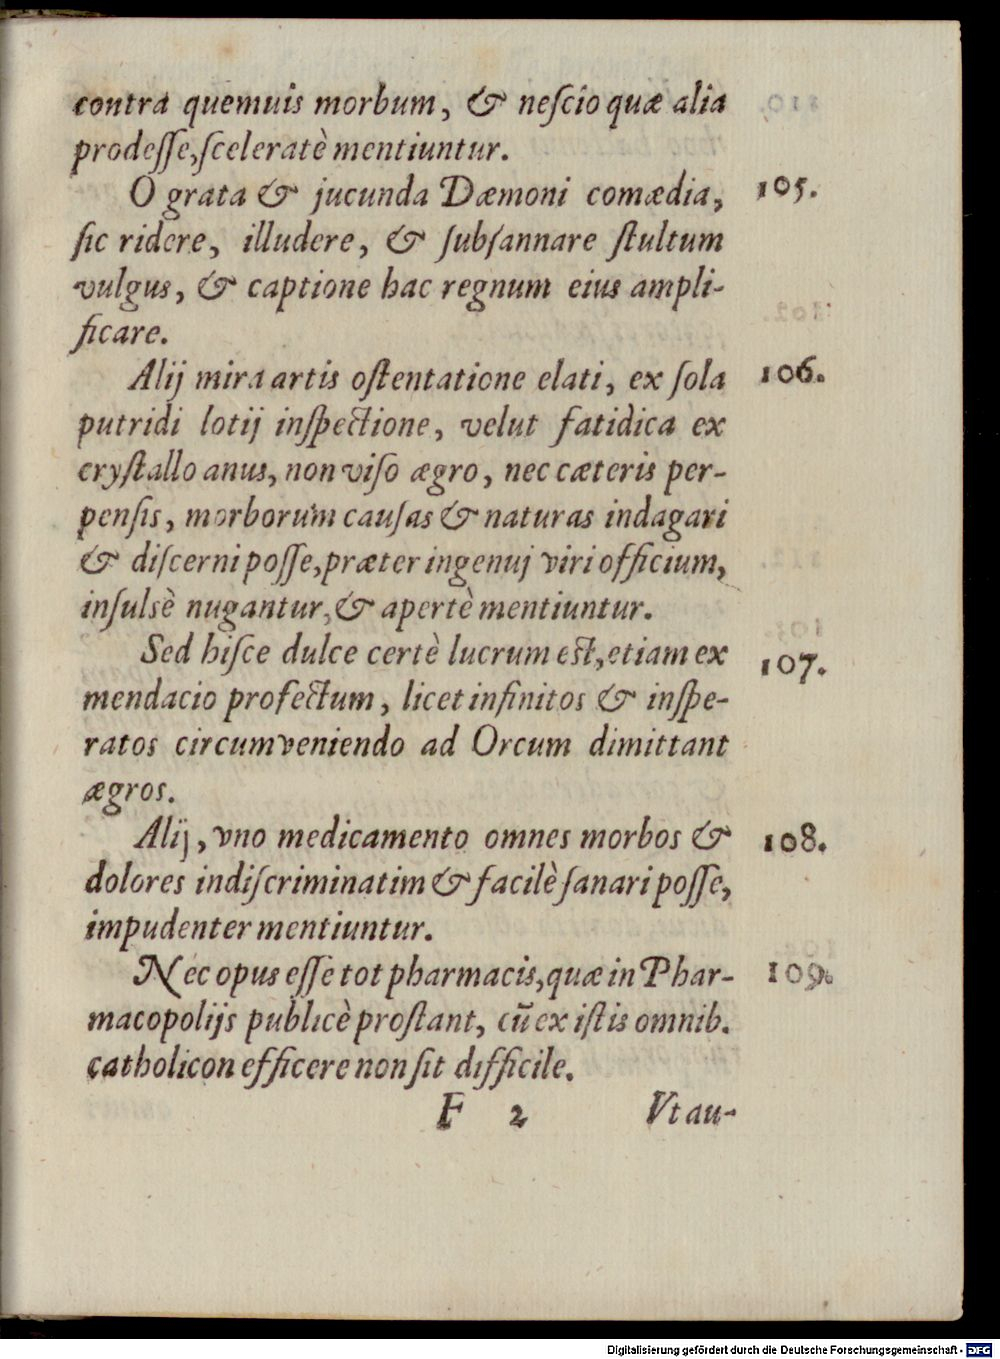 contra quemuis morbum, & neſcio quæ alia
prodeſſe, ſceleratè mentiuntur.
O grata & jucunda Dæmoni comædia, 105.
ſic ridere, illudere, & ſubſannare ſtultum
vulgus, & captione hac regnum eius ampli-
ficare.
Alij mira artis oſtentatione elati, ex ſola 106.
putridi lotij inſpectione, velut fatidica ex
cryſtallo anus, non viſo ægro, nec cæteris per-
penſis, morborum cauſas & naturas indagari
& diſcerni poſſe, præter ingenuj viri officium,
inſulsè nugantur, & apertè mentiuntur.
Sed hiſce dulce certè lucrum est, etiam ex 107.
mendacio profectum, licet infinitos & inſpe-
ratos circumveniendo ad Orcum dimittant
ægros.
Alij, vno medicamento omnes morbos & 108.
dolores indiſcriminatim & facilè ſanari poſſe,
impudenter mentiuntur.
Nec opus eſſe tot pharmacis, quæ in Phar- 109.
macopolijs publicè proſtant, cū ex iſtis omnib.
catholicon efficere non ſit difficile.
F 2 Vt au-
Digitalisierung gefördert durch die Deutsche Forschungsgemeinschaft - DFG